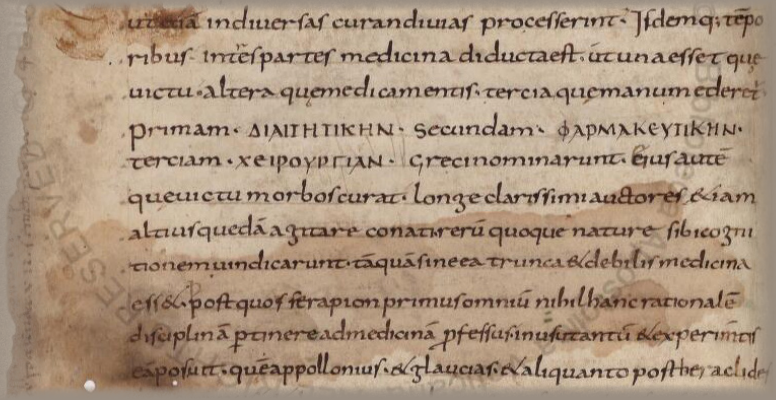 ut etiā indiuersas curandiuias processerint. Isdemq; tēpo
ribus. intrēspartes medicina diductaest. ut unaesset quę
uictu. altera quęmedicamentis. tercia quęmanum ederet.
primam. ΔΙΑΙΤΗΤΙΚΗΝ. Secundam. ΦΑΡΜΑΚΕΥΤΙΚΗΝ.
terciam. ΧΕΙΡΟΥΡΓΙΑΝ. Grecinominarunt. Eiusautē
quęuictu morboscurat. longe clarissimi auctores & iam
altiusquedā agitare conati rerū quoque nature sibicogni
tionemuindicarunt. tāquāsineea trunca & debilis medicina
ess&. post quos serapion primusomniū nihilhancrationalē
disciplinā ptinere admedicinā pfessus inusutantū & experimtis
eāposuit. quēappollonius. & glaucias. & aliquanto post heraclides